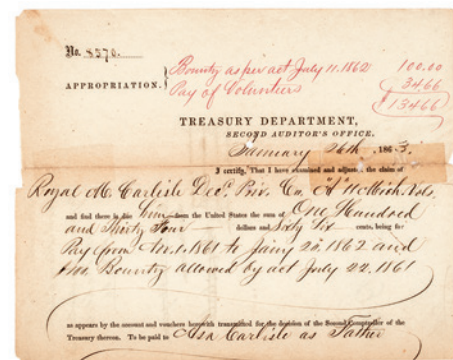 No. 8370.
Bounty as per act July 11. 1862 100.00
APPROPRIATION. } Pay of Volunteers 3466
$13466
TREASURY DEPARTMENT,
SECOND AUDITOR'S OFFICE.
January 26th 1863.
I certify, That I have examined and adjusted the claim of
Royal M. Carlisle Decd. Priv. Co. "A" 11 Mich. Vols.
and find there is due him from the United States the sum of One Hundred
and Thirty Four dollars and Sixty Six cents, being for
Pay from Nov. 1. 1861 to Jany 20, 1862 and
Bounty allowed by act July 22. 1861
as appears by the account and vouchers herewith transmitted for the decision of the Second Comptroller of the
Treasury thereon. To be paid to Asa Carlisle as Father